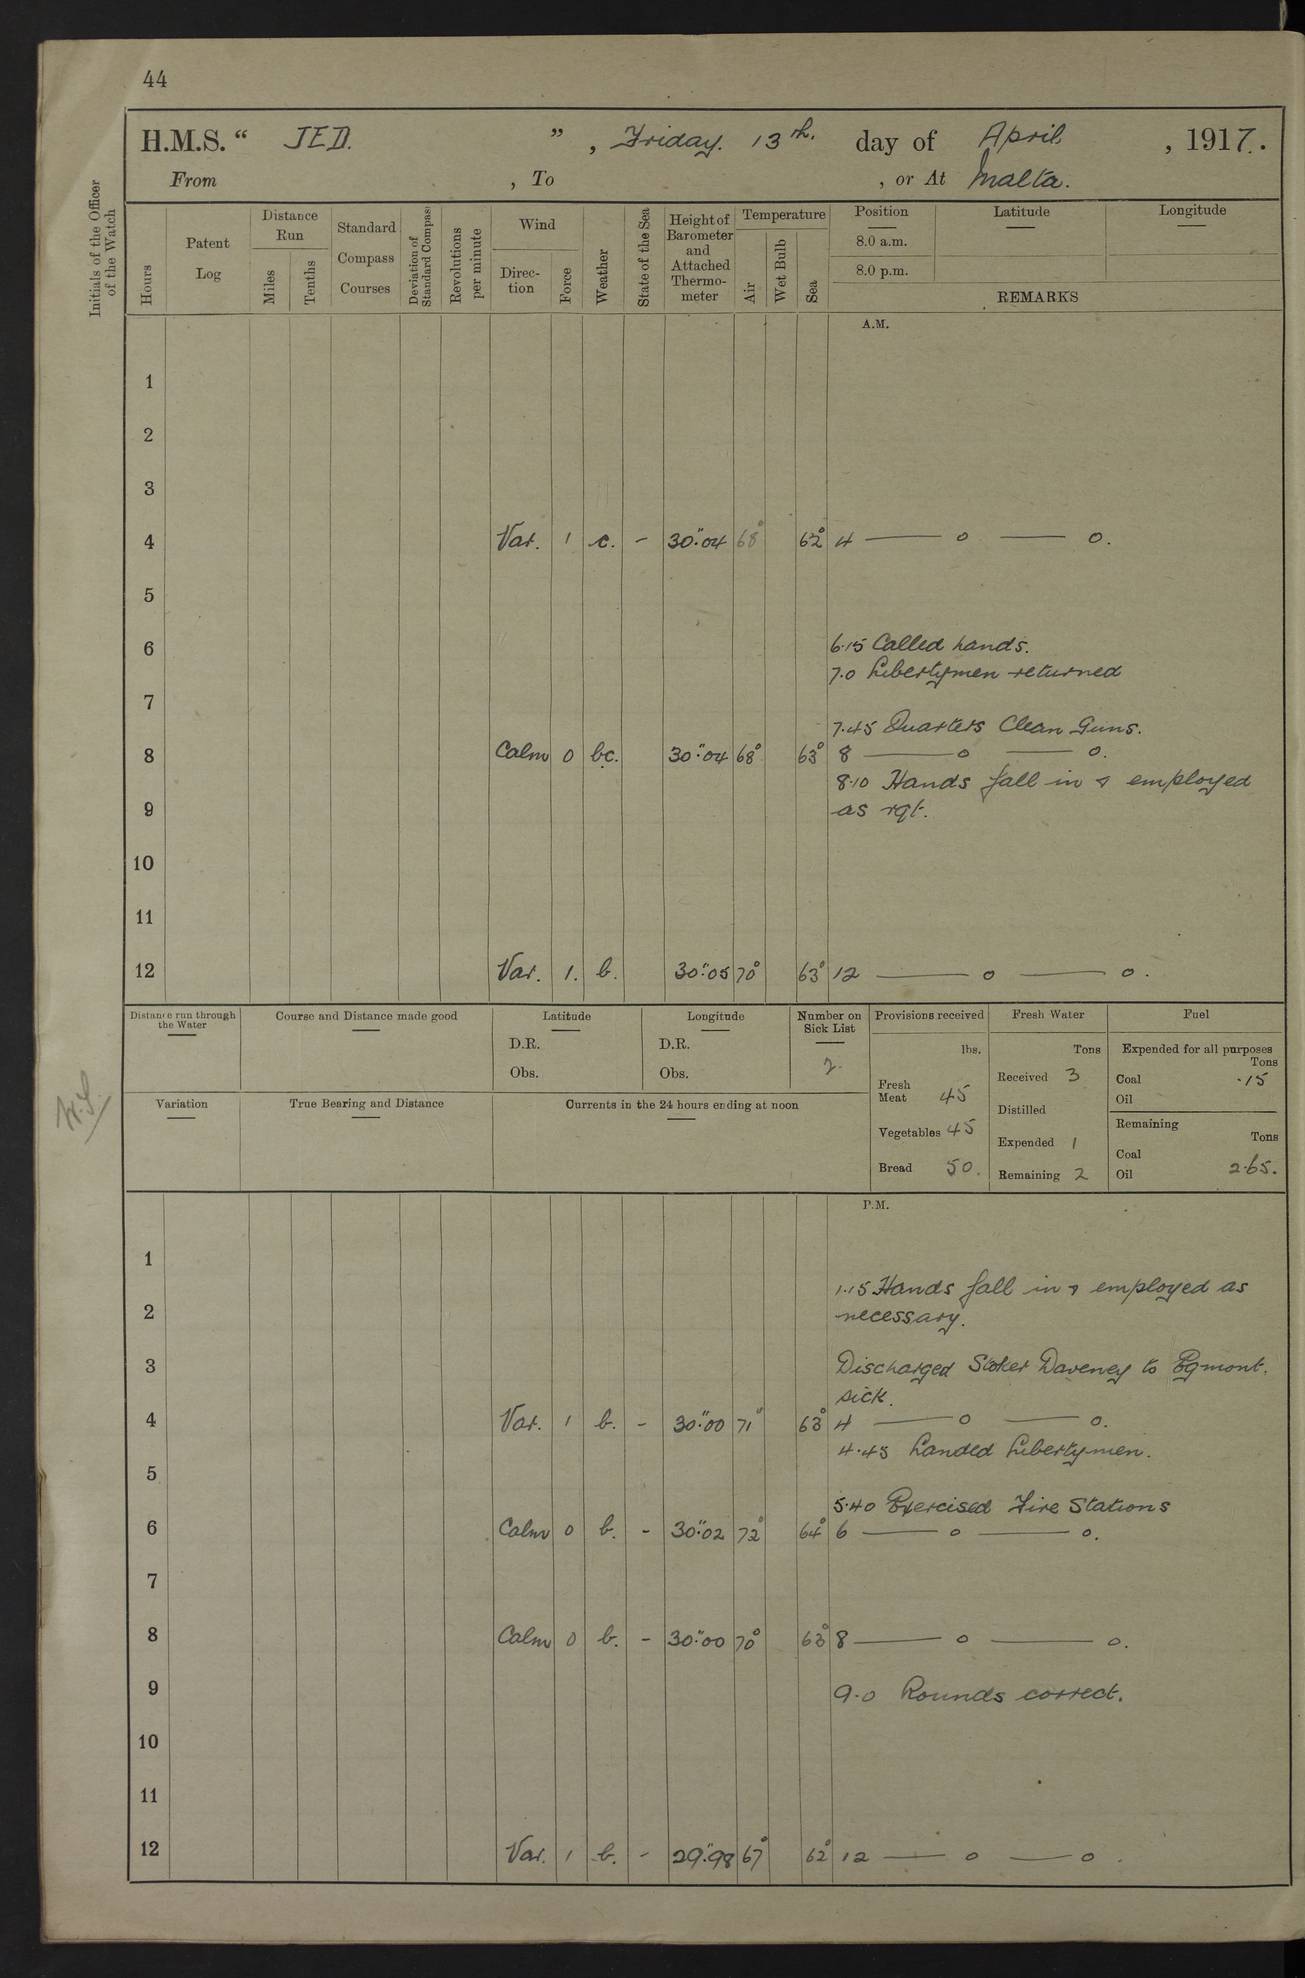 44
H.M.S. “ JED. ” , Friday. 13th. day of April , 1917.
From , To , or At Malta.
Initials of the Officer of the Watch
Hours
Patent Log
Distance Run
Miles
Tenths
Standard Compass Courses
Deviation of Standard Compass
Revolutions per minute
Wind
Direc-tion
Force
Weather
State of the Sea
Height of Barometer and Attached Thermo-meter
Temperature
Air
Wet Bulb
Sea
Position
8.0 a.m.
8.0 p.m.
Latitude
Longitude
REMARKS
A.M.
1
2
3
4 Var. 1 c. - 30".04 68° 62° 4 —— o —— o.
5
6 6.15 Called hands.
7.0 Libertymen returned
7
7.45 Quarters Clean Guns.
8 Calm 0 bc. 30".04 68° 63° 8 —— o —— o.
8.10 Hands fall in & employed
9 as rqt.
10
11
12 Var. 1. b. 30".05 70° 63° 12 —— o —— o.
Distance run through the Water
Course and Distance made good
Latitude
D.R.
Obs.
Longitude
D.R.
Obs.
Number on Sick List
2.
Provisions received
lbs.
Fresh Meat 45
Vegetables 45
Bread 50.
Fresh Water
Tons
Received 3
Distilled
Expended 1
Remaining 2
Fuel
Expended for all purposes
Tons
Coal .15
Oil
Remaining
Tons
Coal
Oil 2.65.
Variation
True Bearing and Distance
Currents in the 24 hours ending at noon
P.M.
1
1.15 Hands fall in & employed as
2 necessary.
3 Discharged Stoker Daveney to Egmont.
sick.
4 Var. 1 b. - 30".00 71° 63° 4 —— o —— o.
4.45 Landed Libertymen.
5
5.40 Exercised Fire Stations
6 Calm 0 b. - 30".02 72° 64° 6 —— o —— o.
7
8 Calm 0 b. - 30".00 70° 63° 8 —— o —— o.
9 9.0 Rounds correct.
10
11
12 Var. 1 b. - 29".98 67° 62° 12 —— o —— o.